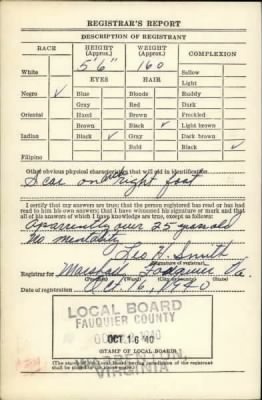 REGISTRAR'S REPORT
DESCRIPTION OF REGISTRANT
RACE HEIGHT (Approx.) WEIGHT (Approx.) COMPLEXION
5' 6" 160
White Sallow
EYES HAIR Light
Negro ✓ Blue Blonde Ruddy
Gray Red Dark
Oriental Hazel Brown Freckled
Brown Black ✓ Light brown
Indian Black ✓ Gray Dark brown
Bald Black ✓
Filipino
Other obvious physical characteristics that will aid in identification
Scar on right foot
I certify that my answers are true; that the person registered has read or has had
read to him his own answers; that I have witnessed his signature or mark and that
all of his answers of which I have knowledge are true, except as follows:
Apparently over 25 years old
No mentality
Smith
(Signature of registrar)
Registrar for Marshall Fauquier Va.
(City or county) (State)
Date of registration Oct 16, 1940
LOCAL BOARD
FAUQUIER COUNTY
OCT 16 40
(STAMP OF LOCAL BOARD)
WARRENTON,
VIRGINIA